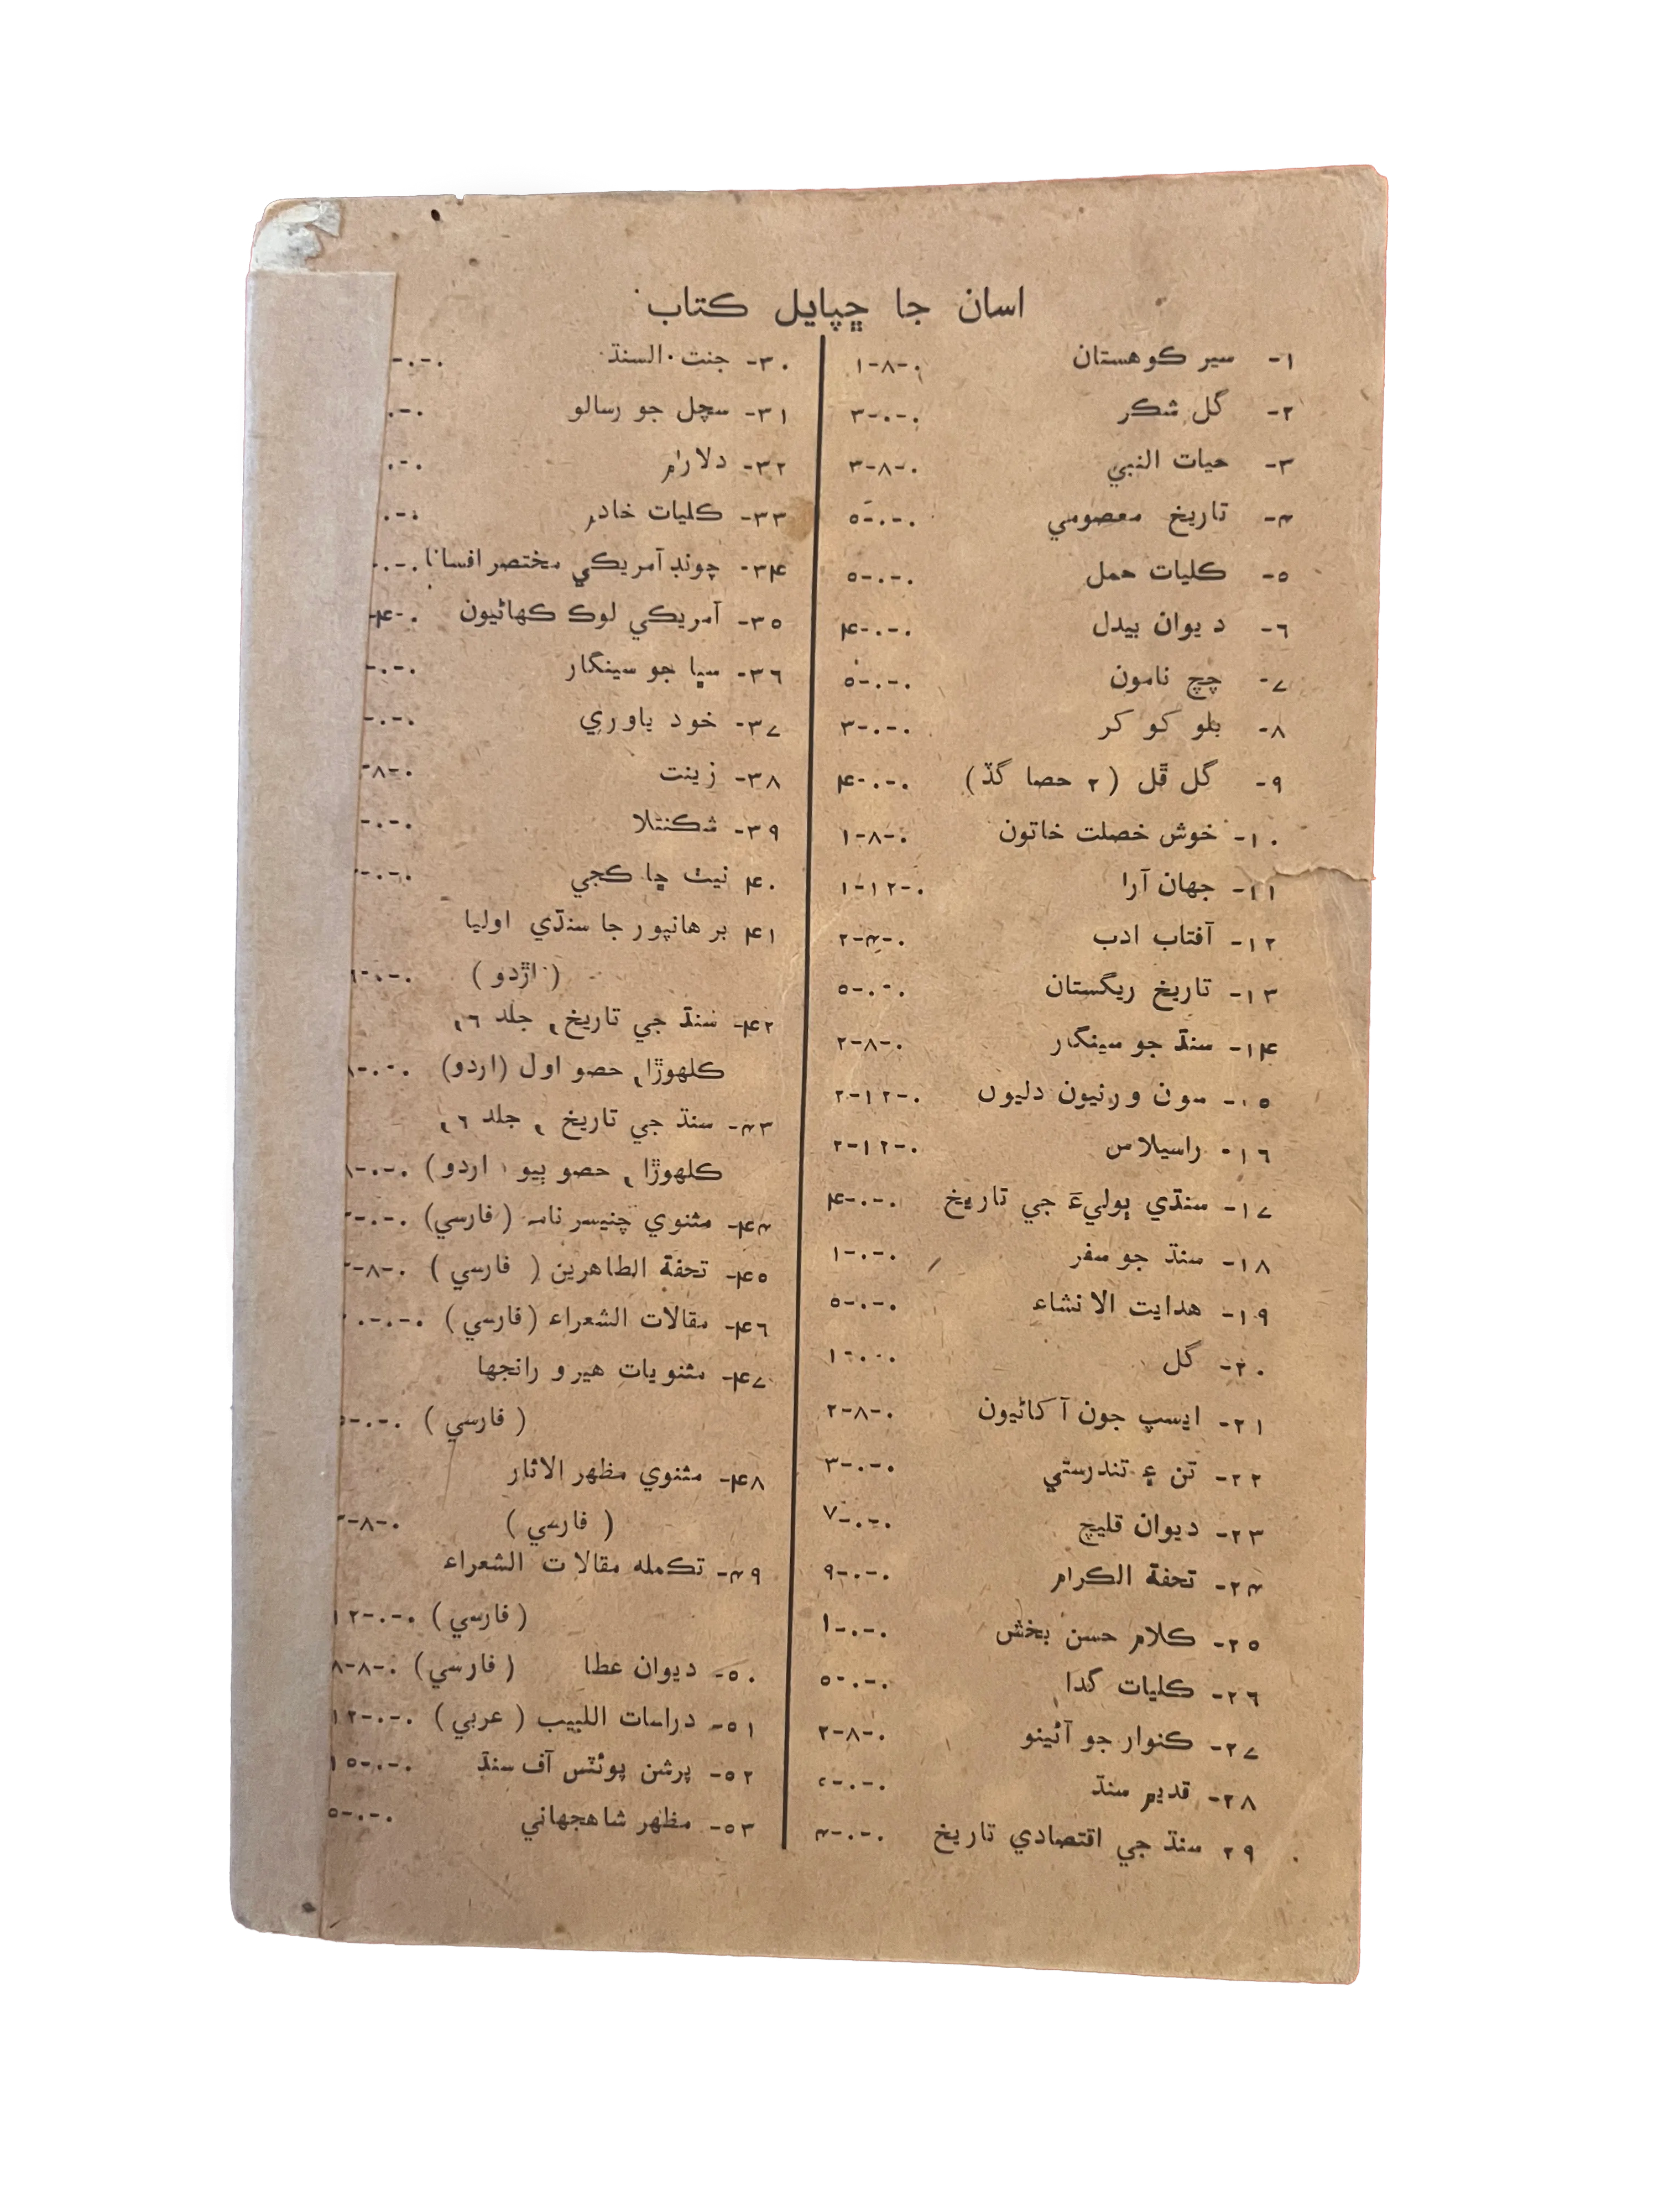 اسان جا ڇپايل ڪتاب
١- سير ڪوهستان ٠-٨-١
٢- گل شڪر ٠-٠-٣
٣- حيات النبي ٠-٨-٣
۴- تاريخ معصومي ٠-٠-٥
٥- ڪليات حمل ٠-٠-٥
٦- ديوان بيدل ٠-٠-۴
٧- چچ نامون ٠-٠-٥
٨- بلو کوکر ٠-٠-٣
٩- گل ڦل (٢ حصا گڏ) ٠-٠-۴
١٠- خوش خصلت خاتون ٠-٨-١
١١- جهان آرا ٠-١٢-١
١٢- آفتاب ادب ٠-۴-٢
١٣- تاريخ ريگستان ٠-٠-٥
١۴- سنڌ جو سينگار ٠-٨-٢
١٥- مون ورنيون دليون ٠-١٢-٢
١٦- راسيلاس ٠-١٢-٢
١٧- سنڌي ٻوليءَ جي تاريخ ٠-٠-۴
١٨- سنڌ جو سفر ٠-٠-١
١٩- هدايت الانشاء ٠-٠-٥
٢٠- گل ٠-٠-١
٢١- ايسپ جون آکاڻيون ٠-٨-٢
٢٢- تن ۽ تندرستي ٠-٠-٣
٢٣- ديوان قليچ ٠-٠-٧
٢۴- تحفة الڪرام ٠-٠-٩
٢٥- ڪلام حسن بخش ٠-٠-١
٢٦- ڪليات گدا ٠-٠-٥
٢٧- ڪنوار جو آئينو ٠-٨-٢
٢٨- قديم سنڌ ٠-٠-
٢٩ سنڌ جي اقتصادي تاريخ ٠-٠-۴
٣٠- جنت السنڌ ٠-٠-
٣١- سچل جو رسالو ٠-٠
٣٢- دلارام ٠-٠
٣٣- ڪليات خادم ٠-٠
٣۴- چونڊ آمريڪي مختصر افسانا ٠-٠-
٣٥- آمريڪي لوڪ ڪهاڻيون ٠-۴-
٣٦- سڀا جو سينگار ٠-٠-
٣٧- خود ياوري ٠-٠-
٣٨- زينت ٠-٨-
٣٩- شڪنتلا ٠-٠-
۴٠ نيٺ ڇا ڪجي ٠-٠-
۴١ برهانپور جا سنڌي اوليا
(اڙدو) ٠-٠-٦
۴٢- سنڌ جي تاريخ, جلد ٦,
ڪلهوڙا, حصو اول (اردو) ٠-٠-٨
۴٣- سنڌ جي تاريخ, جلد ٦,
ڪلهوڙا, حصو ٻيو اردو) ٠-٠-٨
۴۴- مثنوي چنيسر نامہ (فارسي) ٠-٠-
۴٥- تحفة الطاهرين (فارسي) ٠-٨-
۴٦- مقالات الشعراء (فارسي) ٠-٠-٠
۴٧- مثنويات هير و رانجها
(فارسي) ٠-٠-٥
۴٨- مثنوي مظهر الاثار
(فارسي) ٠-٨-
۴٩- تڪمله مقالات الشعراء
(فارسي) ٠-٠-١٢
٥٠- ديوان عطا (فارسي) ٠-٨-٨
٥١- دراسات اللبيب (عربي) ٠-٠-١٢
٥٢- پرشن پوئٽس آف سنڌ ٠-٠-١٥
٥٣- مظهر شاهجهاني ٠-٠-٥